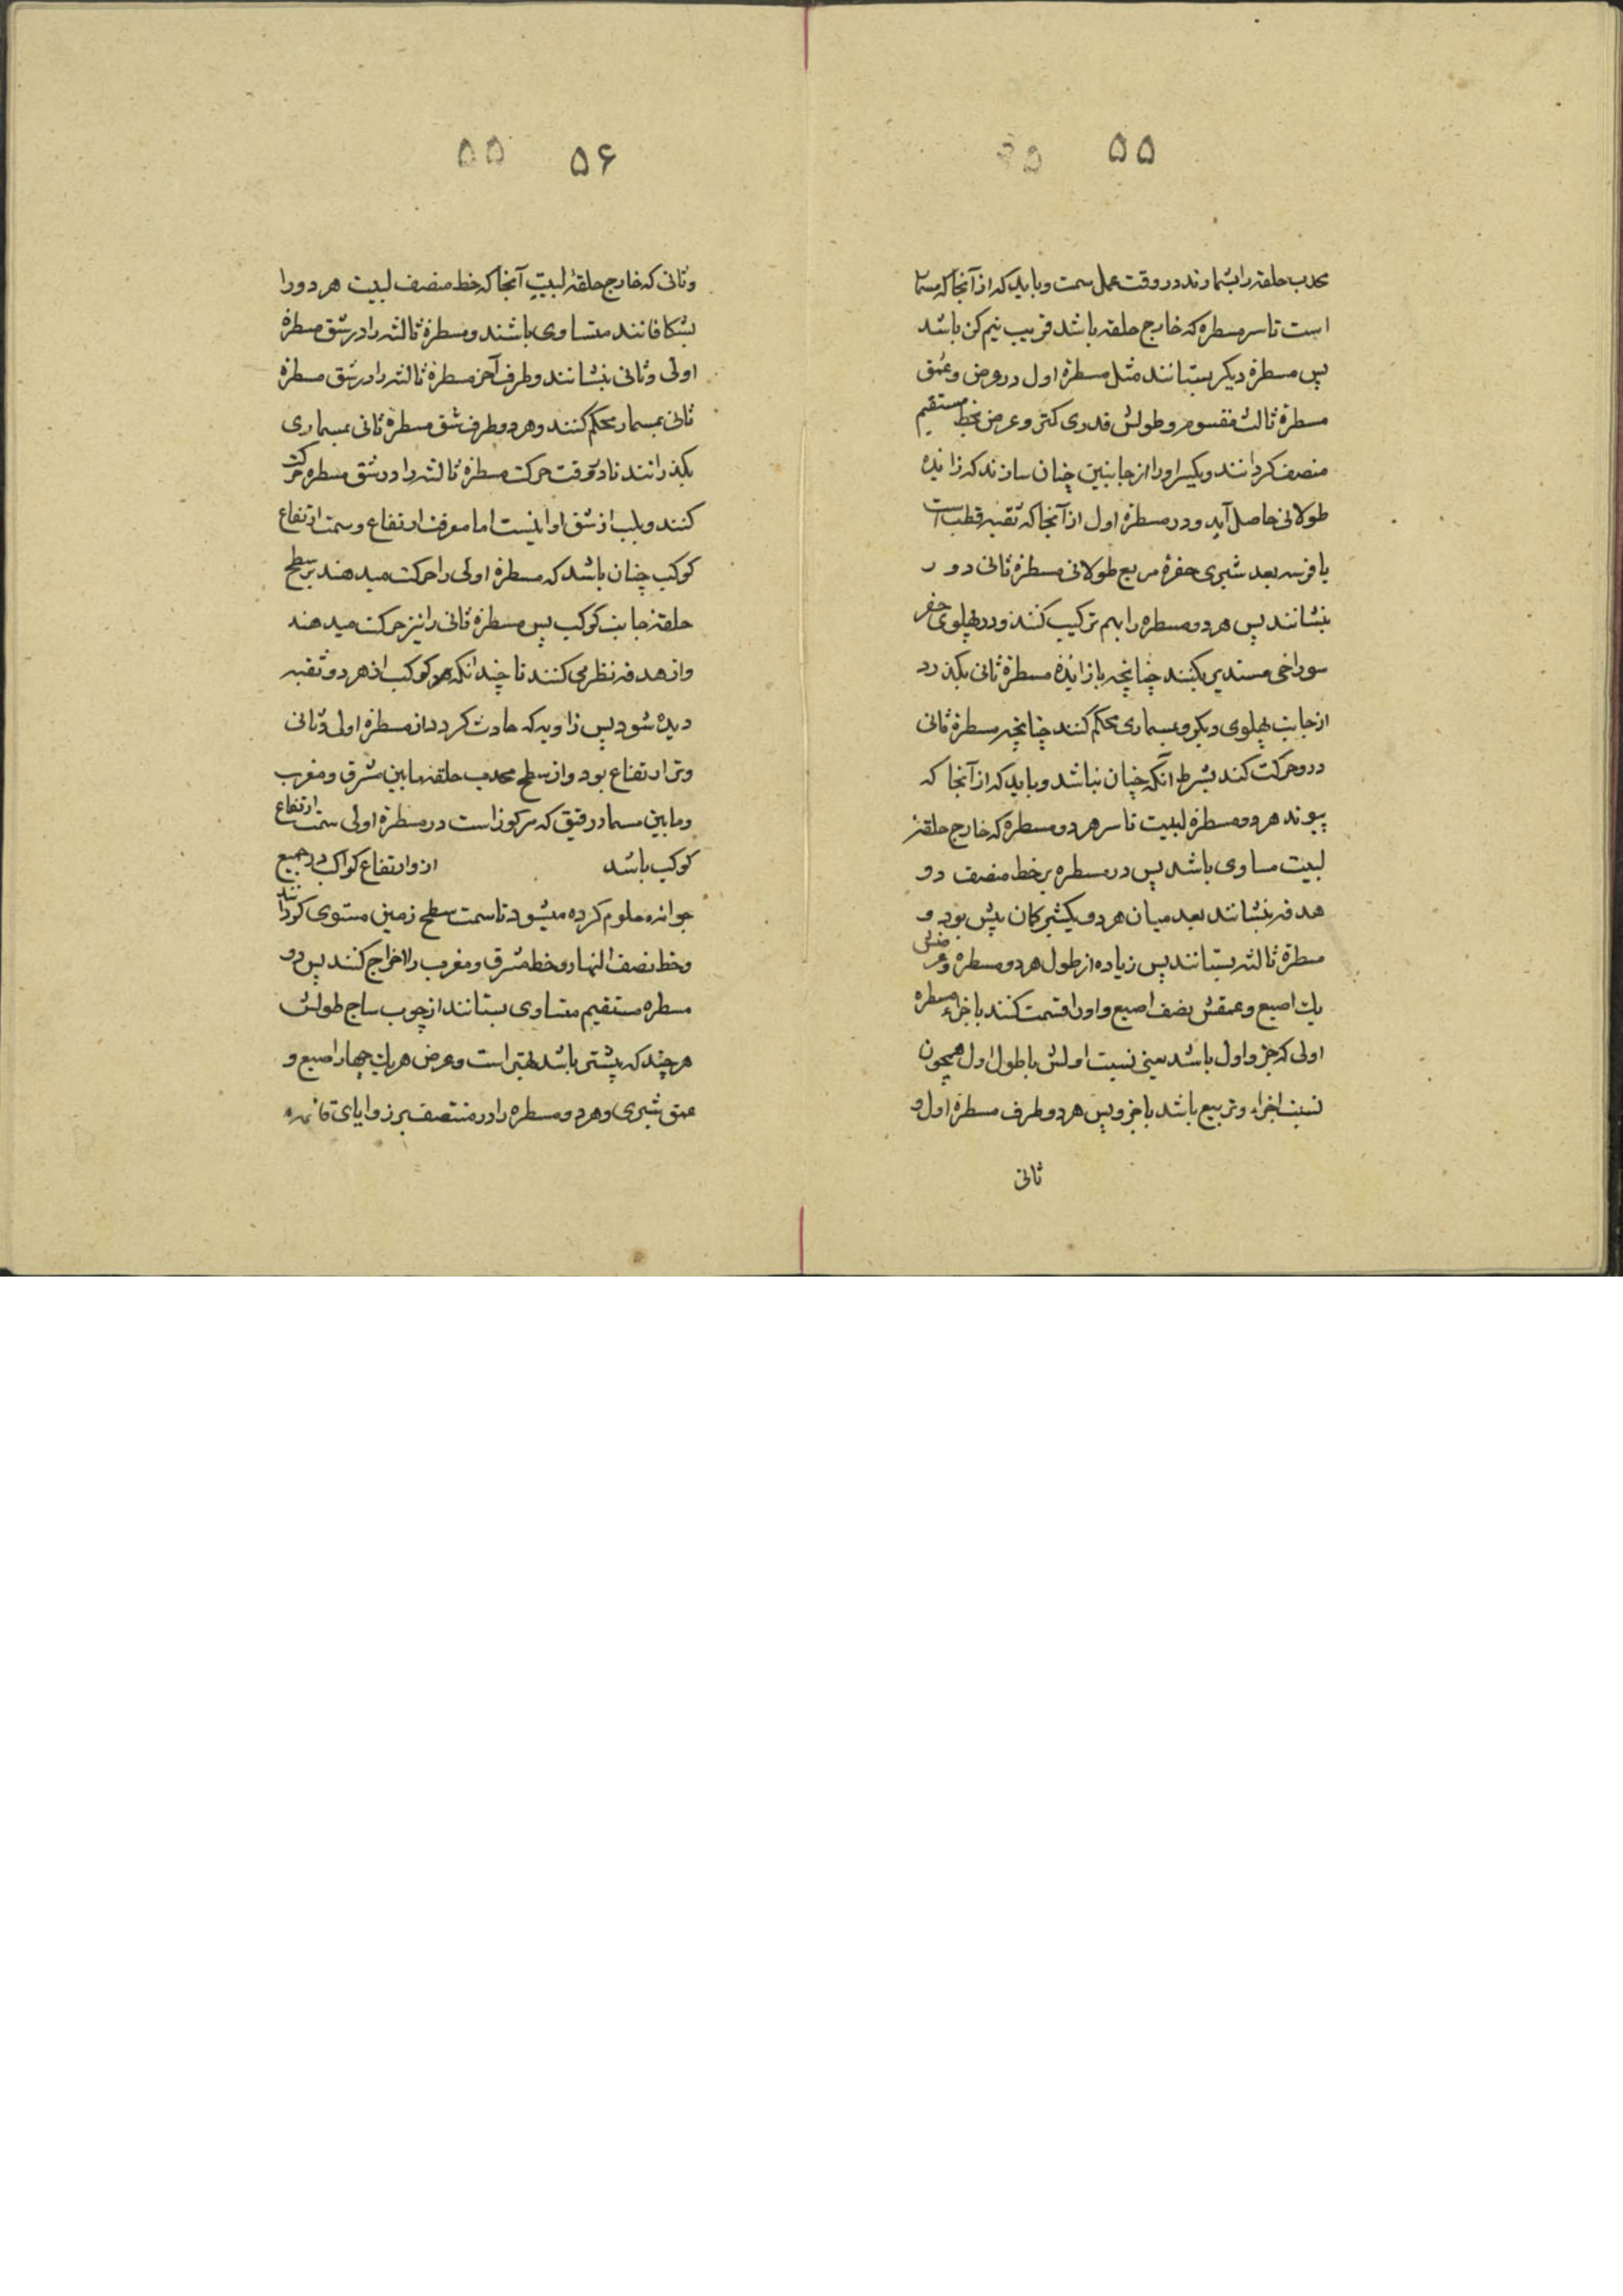 ۵۵
محدب حلقه را بشمارند در وقت عمل سمت و باید که از آنجا که مسمار
است تا سر مسطره که خارج حلقه باشد قریب نیم کن باشد
پس مسطرهٔ دیکر بستانند مثل مسطرهٔ اول در عرض و عمق
مسطرهٔ ثالث مقسوم و طولش قدری کمتر و عرض بخط مستقیم
منصف کردانند ویکسر او را از جانبین چنان سازند که زانده
طولانی حاصل آید و در مسطرهٔ اول از آنجا که ثقبه قطب است
یا فرسه بعد شبری حفرهٔ مربع طولانی مسطرهٔ ثانی دو ر
بنشانند پس هر دو مسطره را بهم ترکیب کنند و در پهلوی حفر
سوراخی مستدیر بکنند چنانچه بازانذهٔ مسطرهٔ ثانی بکذرد
از جانب پهلوی دیکر و بمسماری محکم کنند چنانچه مسطرهٔ ثانی
در و حرکت کند بشرط انکه چنان نباشد و باید که از آنجا که
پیوند هر دو مسطره لبیت تا سر هر دو مسطره که خارج حلقهٔ
لبیت مساوی باشد پس در مسطره بر خط منصف دو
هدفه بنشانند بعد میان هر دو یکشبر کان بیش بود و
مسطرهٔ ثالثه بستانند پس زیاده از طول هر دو مسطره و عرضش
یک اصبع و عمقش نصف اصبع و او را قسمت کنند باجزاء مسطره
اولی که جزو اول باشد یعنی نسبت اولش با طول اول همچون
نسبت اجزاء وتر بیع باشد باجزو پس هر دو طرف مسطرهٔ اول و
ثانی
۵۶ ۵۵
وثانی که خارج حلقهٔ لبیت آنجا که خط منصف لبیت هر دو را
بشکافانند متساوی باشند و مسطرهٔ ثالثه را در شق مسطرهٔ
اولی وثانی بنشانند و طرف آخر مسطرهٔ ثالثه را در شق مسطرهٔ
ثانی بمسمار محکم کنند و هر دو طرف شق مسطرهٔ ثانی بمسماری
بکذرانند تا در وقت حرکت مسطرهٔ ثالثه را در شق مسطره حرکت
کنند و بلب از شق او اینست اما معرفت ارتفاع و سمت ارتفاع
کوکب چنان باشد که مسطرهٔ اولی را حرکت میدهند بر سطح
حلقه جانب کوکب پس مسطرهٔ ثانی را نیز حرکت میدهند
و از هدفه نظر می کنند تا چندانکه هر کوکب از هر دو ثقبه
دیده شود پس زاویه که حادث کردد از مسطرهٔ اولی وثانی
وتر ارتفاع بود و از سطح محدب حلقه مابین مشرق و مغرب
و مابین مسمار رقیق که مرکوز است در مسطرهٔ اولی سمت ارتفاع
کوکب باشد از و ارتفاع کواکب در جمیع
جوانب معلوم کرده میشود تا سمت سطح زمین مستوی کردانند
و خط نصف النهار و خط مشرق و مغرب را اخراج کنند پس دو
مسطره مستقیم متساوی بستانند از چوب ساج طولش
هر چند که بیشتر باشد بهتر است و عرض هر یک چهار اصبع و
عمق شبری و هر دو مسطره را در منتصف بر زوایای قائمه